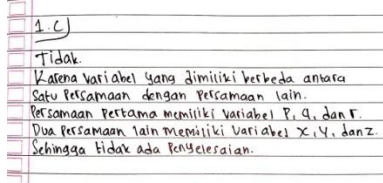 1.C)
Tidak.
Karena variabel yang dimiliki berbeda antara
Satu Persamaan dengan Persamaan lain.
Persamaan Pertama memiliki variabel P, q, dan r.
Dua Persamaan lain memiliki variabel x, y, dan z.
Sehingga tidak ada Penyelesaian.